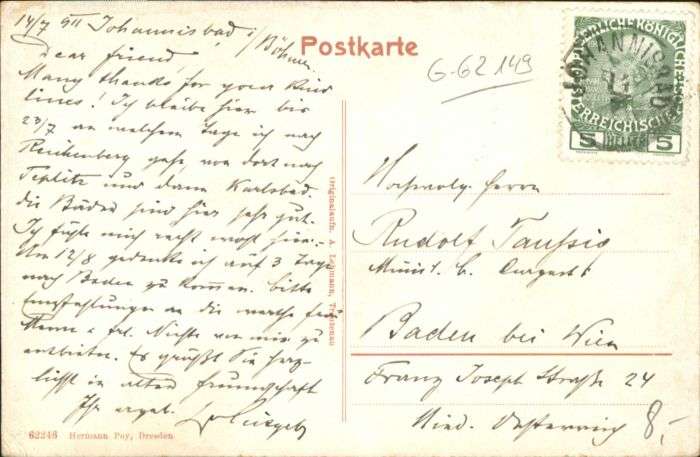 14/7 911 Johannisbad i/Böhmen.
Dear friend!
Many thanks for your kind
lines! Ich bleibe hier bis
23/7 an welchem Tage ich nach
Reichenberg gehe, von dort nach
Teplitz und dann Karlsbad.
die Bäder sind hier sehr gut.
Ich fühle mich recht wohl hier.
Am 12/8 gedenke ich auf 3 Tage
nach Baden zu kommen. bitte
Empfehlungen an die werthe frau
Mama & frl. Nichte von mir zu
entbieten. Es grüßt Sie herz-
lichst in alter freundschaft
Ihr ergeb.
62246 Hermann Poy, Dresden
Postkarte
G-62 149
Originalaufn. A. Lehmann, Trautenau
JOHANNISBAD
5 5
Hochwolg. Herrn
Rudolf Taussig
Baden bei Wien
Franz Joseph Straße 24
Nied. Oesterreich
8,-